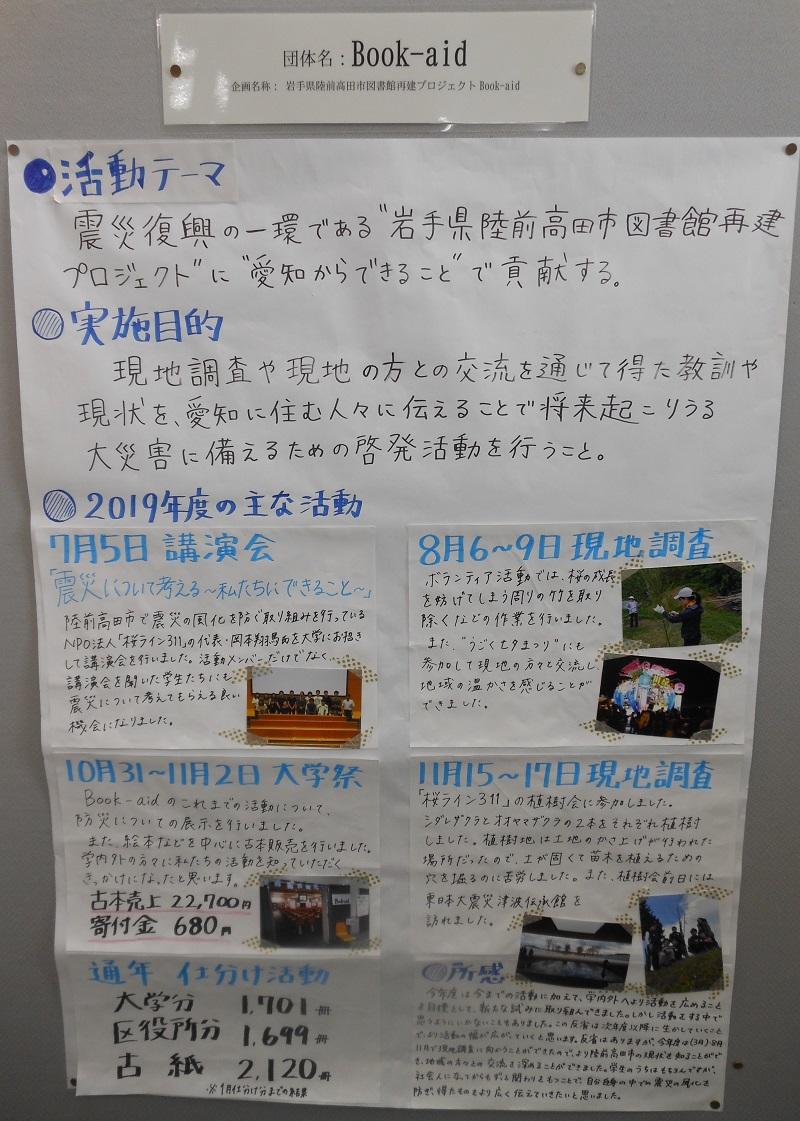 団体名:Book-aid
企画名称: 岩手県陸前高田市図書館再建プロジェクトBook-aid
●活動テーマ
震災復興の一環である"岩手県陸前高田市図書館再建
プロジェクト"に"愛知からできること"で貢献する。
実施目的
現地調査や現地の方との交流を通じて得た教訓や
現状を、愛知に住む人々に伝えることで将来起こりうる
大災害に備えるための啓発活動を行うこと。
2019年度の主な活動
7月5日 講演会
「震災について考える〜私たちにできること〜」
陸前高田市で震災の風化を防ぐ取り組みを行っている
NPO法人「桜ライン311」の代表・岡本翔馬氏を大学にお招き
して講演会を行いました。活動メンバーだけでなく、
講演会を聞いた学生たちにも
震災について考えてもらえる良い
機会になりました。
8月6〜9日 現地調査
ボランティア活動では、桜の成長
を妨げてしまう周りの竹を取り
除くなどの作業を行いました。
また、"うごく七夕まつり"にも
参加して現地の方々と交流し、
地域の温かさを感じることが
できました。
10月31〜11月2日 大学祭
Book-aidのこれまでの活動について、
防災についての展示を行いました。
また、絵本などを中心に古本販売を行いました。
学内外の方々に私たちの活動を知っていただく
きっかけになったと思います。
古本売上 22,700円
寄付金 680円
11月15〜17日 現地調査
「桜ライン311」の植樹会に参加しました。
シダレザクラとオオヤマザクラの2本をそれぞれ植樹
しました。植樹地は土地のかさ上げが行われた
場所だったので、土が固くて苗木を植えるための
穴を掘るのに苦労しました。また、植樹会前日には
東日本大震災津波伝承館を
訪れました。
通年 仕分け活動
大学分 1,701冊
区役所分 1,699冊
古紙 2,120冊
※1月仕分け分までの結果
所感
今年度は今までの活動に加えて、学内外へより活動を広めること
を目標として、新たな試みに取り組んできました。しかし活動をする中で
思うようにいかないこともありました。この反省は次年度以降に生かしていくこと
で、より活動の幅が広がっていくと思います。反省はありますが、今年度は(3月)・8月
11月で現地調査に向かうことができたので、より陸前高田市の現状を知ることがで
き、地域の方々との交流も深めることができました。学生のうちはもちろんですが、
社会人になってからもずっと関わりをもつことで、自分自身の中での震災の風化を
防ぎ、得たものをより広く伝えていきたいと思いました。